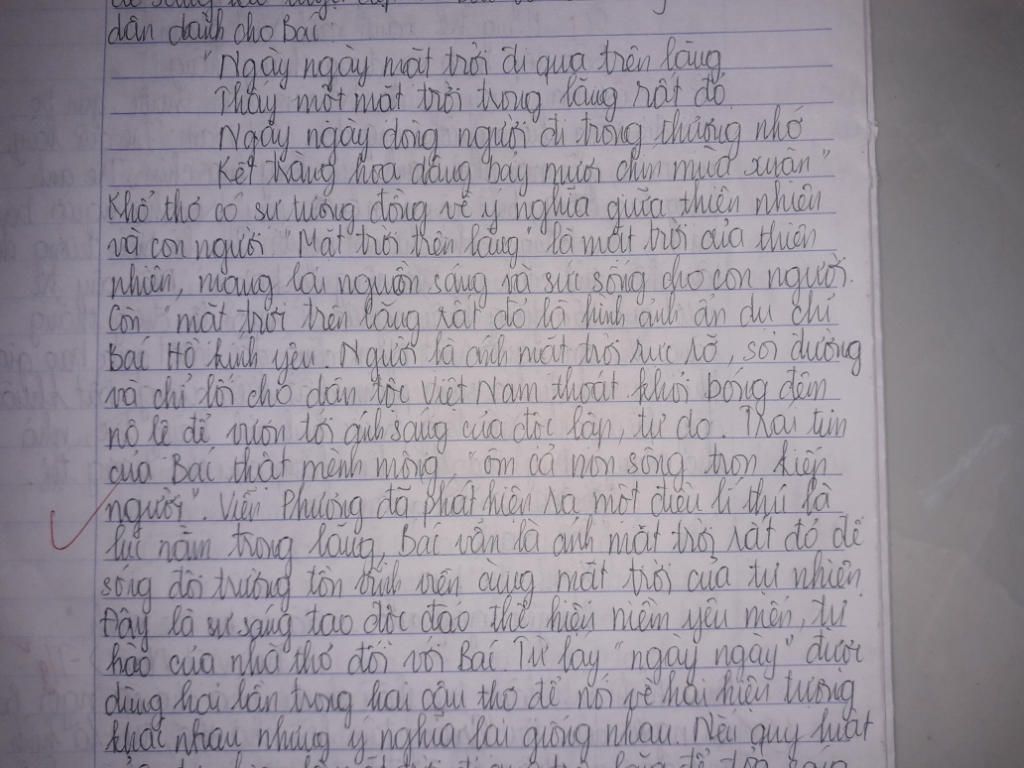 dân dành cho Bác
"Ngày ngày mặt trời đi qua trên lăng
Thấy một mặt trời trong lăng rất đỏ
Ngày ngày dòng người đi trong thương nhớ
Kết tràng hoa dâng bảy mươi chín mùa xuân"
Khổ thơ có sự tương đồng về ý nghĩa giữa thiên nhiên
và con người "Mặt trời trên lăng" là mặt trời của thiên
nhiên, mang lại nguồn sáng và sức sống cho con người.
Còn "mặt trời trên lăng rất đỏ là hình ảnh ẩn dụ chỉ
Bác Hồ kính yêu. Người là ánh mặt trời rực rỡ, soi đường
và chỉ lối cho dân tộc Việt Nam thoát khỏi bóng đêm
nô lệ để vươn tới ánh sáng của độc lập, tự do. Trái tim
của Bác thật mênh mông "ôm cả non sông trọn kiếp
người". Viễn Phương đã phát hiện ra một điều lí thú là
lúc nằm trong lăng, Bác vẫn là ánh mặt trời rất đỏ để
sống đời trường tồn vĩnh viễn cùng mặt trời của tự nhiên.
Đây là sự sáng tạo độc đáo thể hiện niềm yêu mến, tự
hào của nhà thơ đối với Bác Từ láy "ngày ngày" được
dùng hai lần trong hai câu thơ để nói về hai hiện tượng
khác nhau nhưng ý nghĩa lại giống nhau. Nếu quy luật